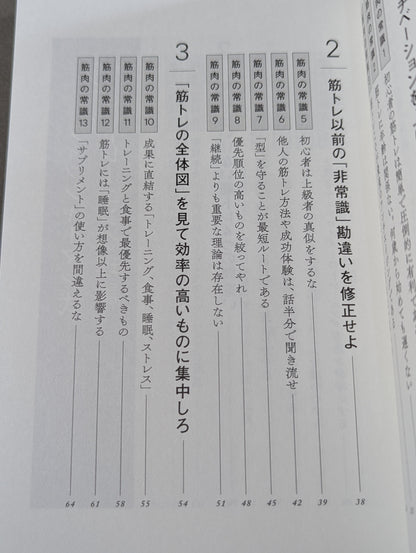 2 筋トレ以前の「非常識」勘違いを修正せよ 38
筋肉の常識 5 初心者は上級者の真似をするな 39
筋肉の常識 6 他人の筋トレ方法や成功体験は、話半分で聞き流せ 42
筋肉の常識 7 「型」を守ることが最短ルートである 45
筋肉の常識 8 優先順位の高いものを絞ってやれ 48
筋肉の常識 9 「継続」よりも重要な理論は存在しない 51
3 「筋トレの全体図」を見て効率の高いものに集中しろ 54
筋肉の常識 10 成果に直結する「トレーニング、食事、睡眠、ストレス」 55
筋肉の常識 11 トレーニングと食事で最優先するべきもの 58
筋肉の常識 12 筋トレには「睡眠」が想像以上に影響する 61
筋肉の常識 13 「サプリメント」の使い方を間違えるな 64